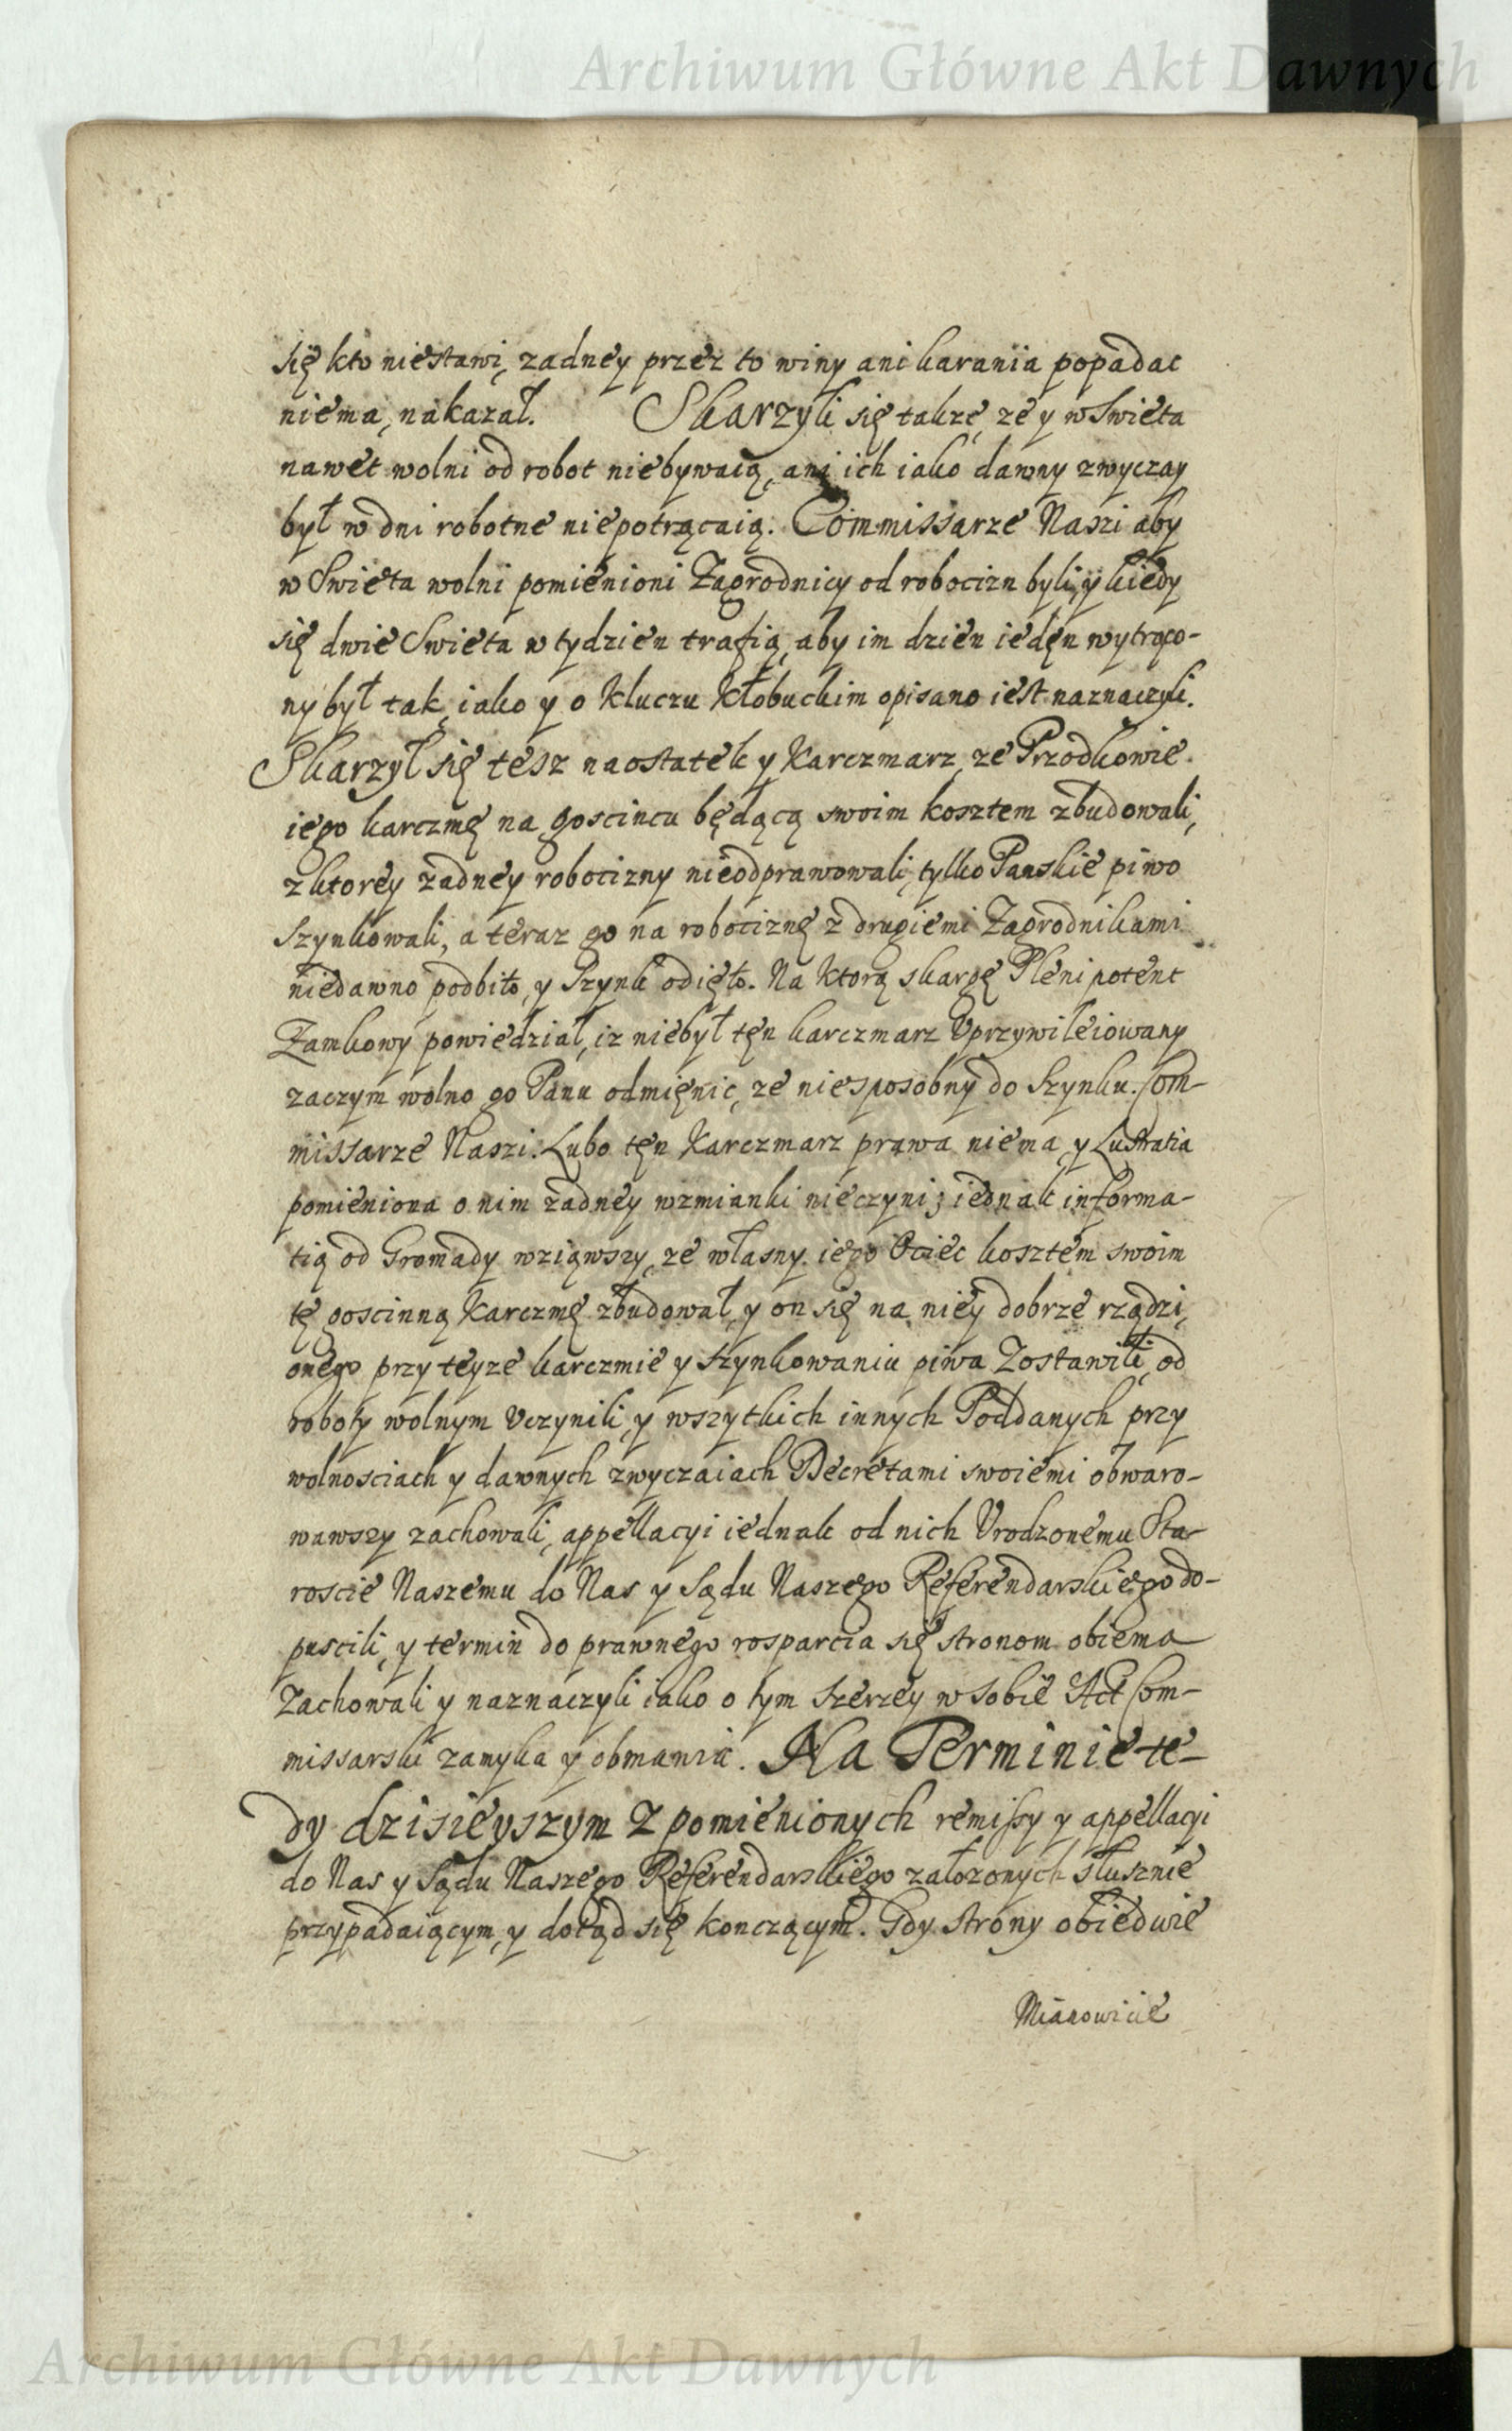 Archiwum Główne Akt Dawnych
się kto niestawi, zadney przez to winy ani karania popadac
niema, nakazał. Skarzyli się także, ze y w Swieta
nawet wolni od robot niebywaią, ani ich iako dawny zwyczay
był w dni robotne niepotrącaią. Commissarze Naszi aby
w Swieta wolni pomienioni Zagrodnicy od robocizn byli, y kiedy
się dwie Swieta w tydzien trafią, aby im dzien ieden wytrąco-
ny był tak, iako y o Kluczu Kłobuckim opisano iest naznaczyli.
Skarzył się tesz naostatek y Karczmarz, ze Przodkowie
iego karczmę na goscincu będącą swoim kosztem zbudowali,
z ktorey zadney robocizny nieodprawowali, tylko Panskie piwo
szynkowali, a teraz go na robociznę z drugiemi Zagrodnikami
niedawno podbito, y Szynk odięto. Na ktorą skargę Plenipotent
Zamkowy powiedział, iz niebył tęn karczmarz Vprzywileiowany
zaczym wolno go Panu odmięnic, ze niesposobny do Szynku. Com-
missarze Naszi. Lubo tęn Karczmarz prawa niema, y Lustratia
pomieniona o nim zadney wzmianki nieczyni; iednak informa-
tią od Gromady wziąwszy, ze własny iego Ociec kosztem swoim
tę goscinną Karczmę zbudował, y on się na niey dobrze rządzi,
onego przy teyze karczmie y szynkowaniu piwa Zostawili, od
roboty wolnym Vczynili, y wszytkich innych Poddanych przy
wolnosciach y dawnych zwyczaiach Decretami swoiemi obwaro-
wawszy zachowali, appellacyi iednak od nich Vrodzonemu Sta-
roscie Naszemu do Nas y Sądu Naszego Referendarskiego do-
puscili, y termin do prawnego rosparcia się stronom obiema
Zachowali y naznaczyli iako o tym szerzey w sobie Act Com-
missarski zamyka y obmawia. Na Terminie te-
dy dzisieyszym Z pomienionych remissy y appellacyi
do Nas y Sądu Naszego Referendarskiego załozonych słusznie
przypadaiącym, y dotąd się konczącym. Gdy strony obiedwie
Mianowicie
Archiwum Główne Akt Dawnych